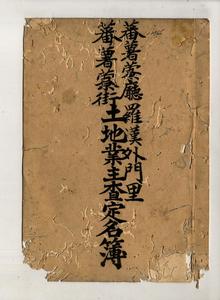 蕃薯藔廳羅漢外門里
蕃薯藔街土地業主查定名簿